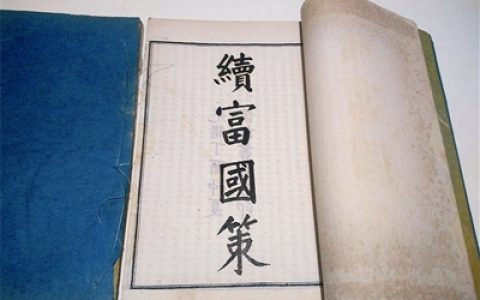 續富國策